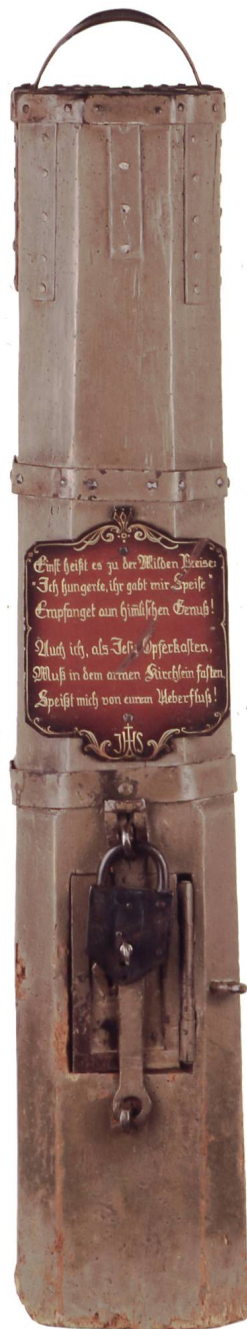 Einst heißt es zu der Milden Kreise:
"Ich hungerte, ihr gabt mir Speise"
Empfanget nun him̅lischen Genuß!
Auch ich, als Jesu Opferkasten,
Muß in dem armen Kirchlein fasten
Speißt mich von eurem Ueberfluß!
JHS